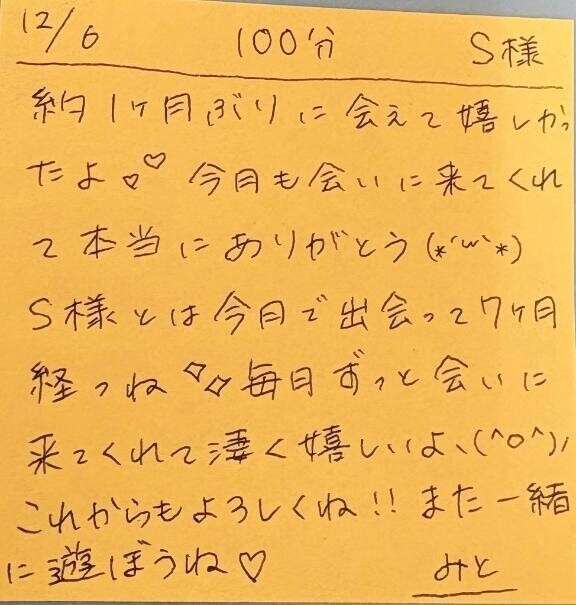 12/6 100分 S様
約1ヶ月ぶりに会えて嬉しかっ
たよ♡♡ 今月も会いに来てくれ
て本当にありがとう(*´ω`*)
S様とは今月で出会って7ヶ月
経つね✧✧毎月ずっと会いに
来てくれて凄く嬉しいよヽ(^o^)ノ
これからもよろしくね!!また一緒
に遊ぼうね♡ みと